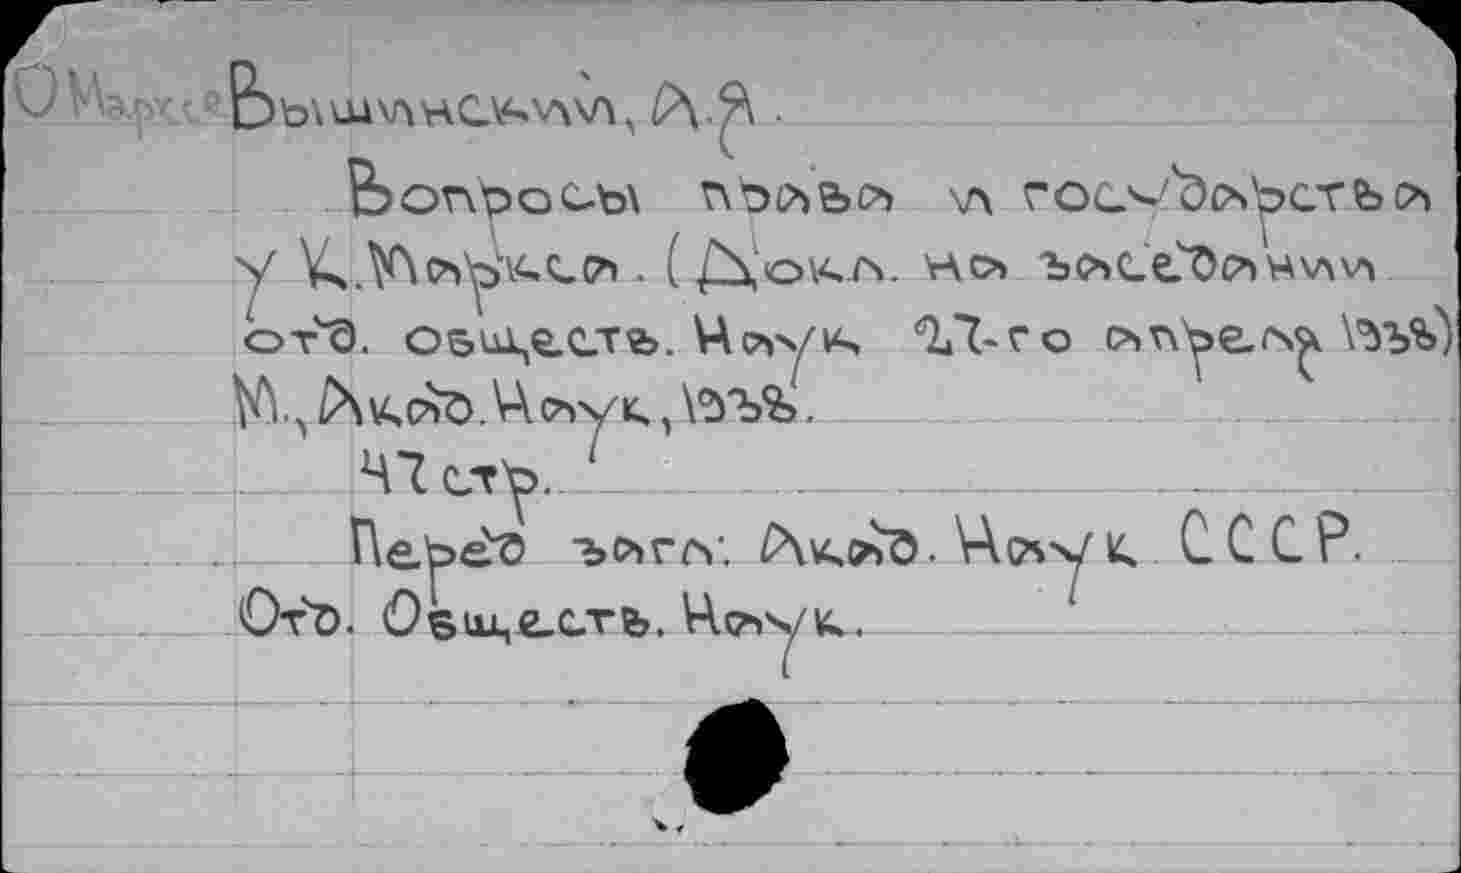 О Марксе Вышинский, А.Я.
Вопросы права и государства
у К.Маркса. (Докл. на заседании
отд. обществ. Наук 27-го апреля 1938)
М., Акад. Наук, 1938.
47 стр.
Перед загл: Акад. Наук СССР.
Отд. Обществ. Наук.